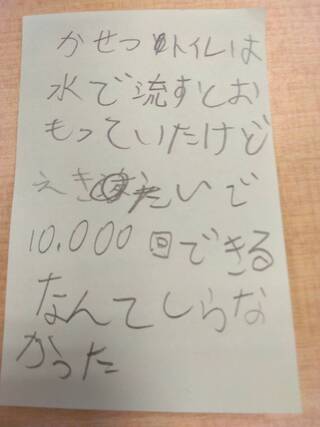 かせつトイレは
水で流すとお
もっていたけど
えきたいで
10.000回できる
なんてしらな
かった